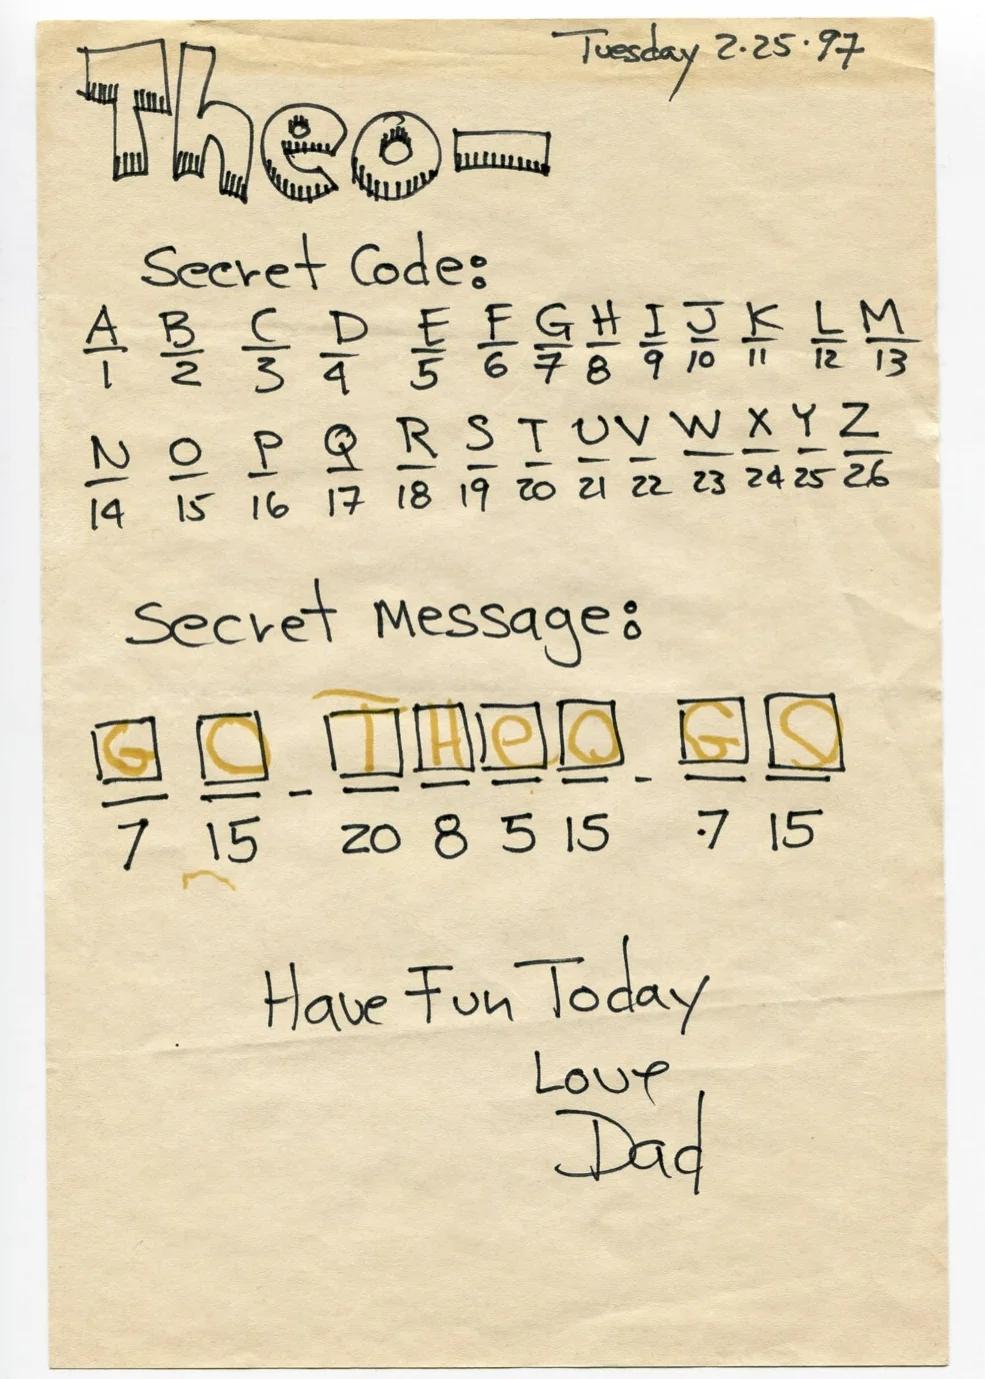 Tuesday 2.25.97
Theo-
Secret Code:
A B C D E F G H I J K L M
1 2 3 4 5 6 7 8 9 10 11 12 13
N O P Q R S T U V W X Y Z
14 15 16 17 18 19 20 21 22 23 24 25 26
Secret Message:
G O - T H e O - G O
7 15 20 8 5 15 .7 15
Have Fun Today
Love
Dad